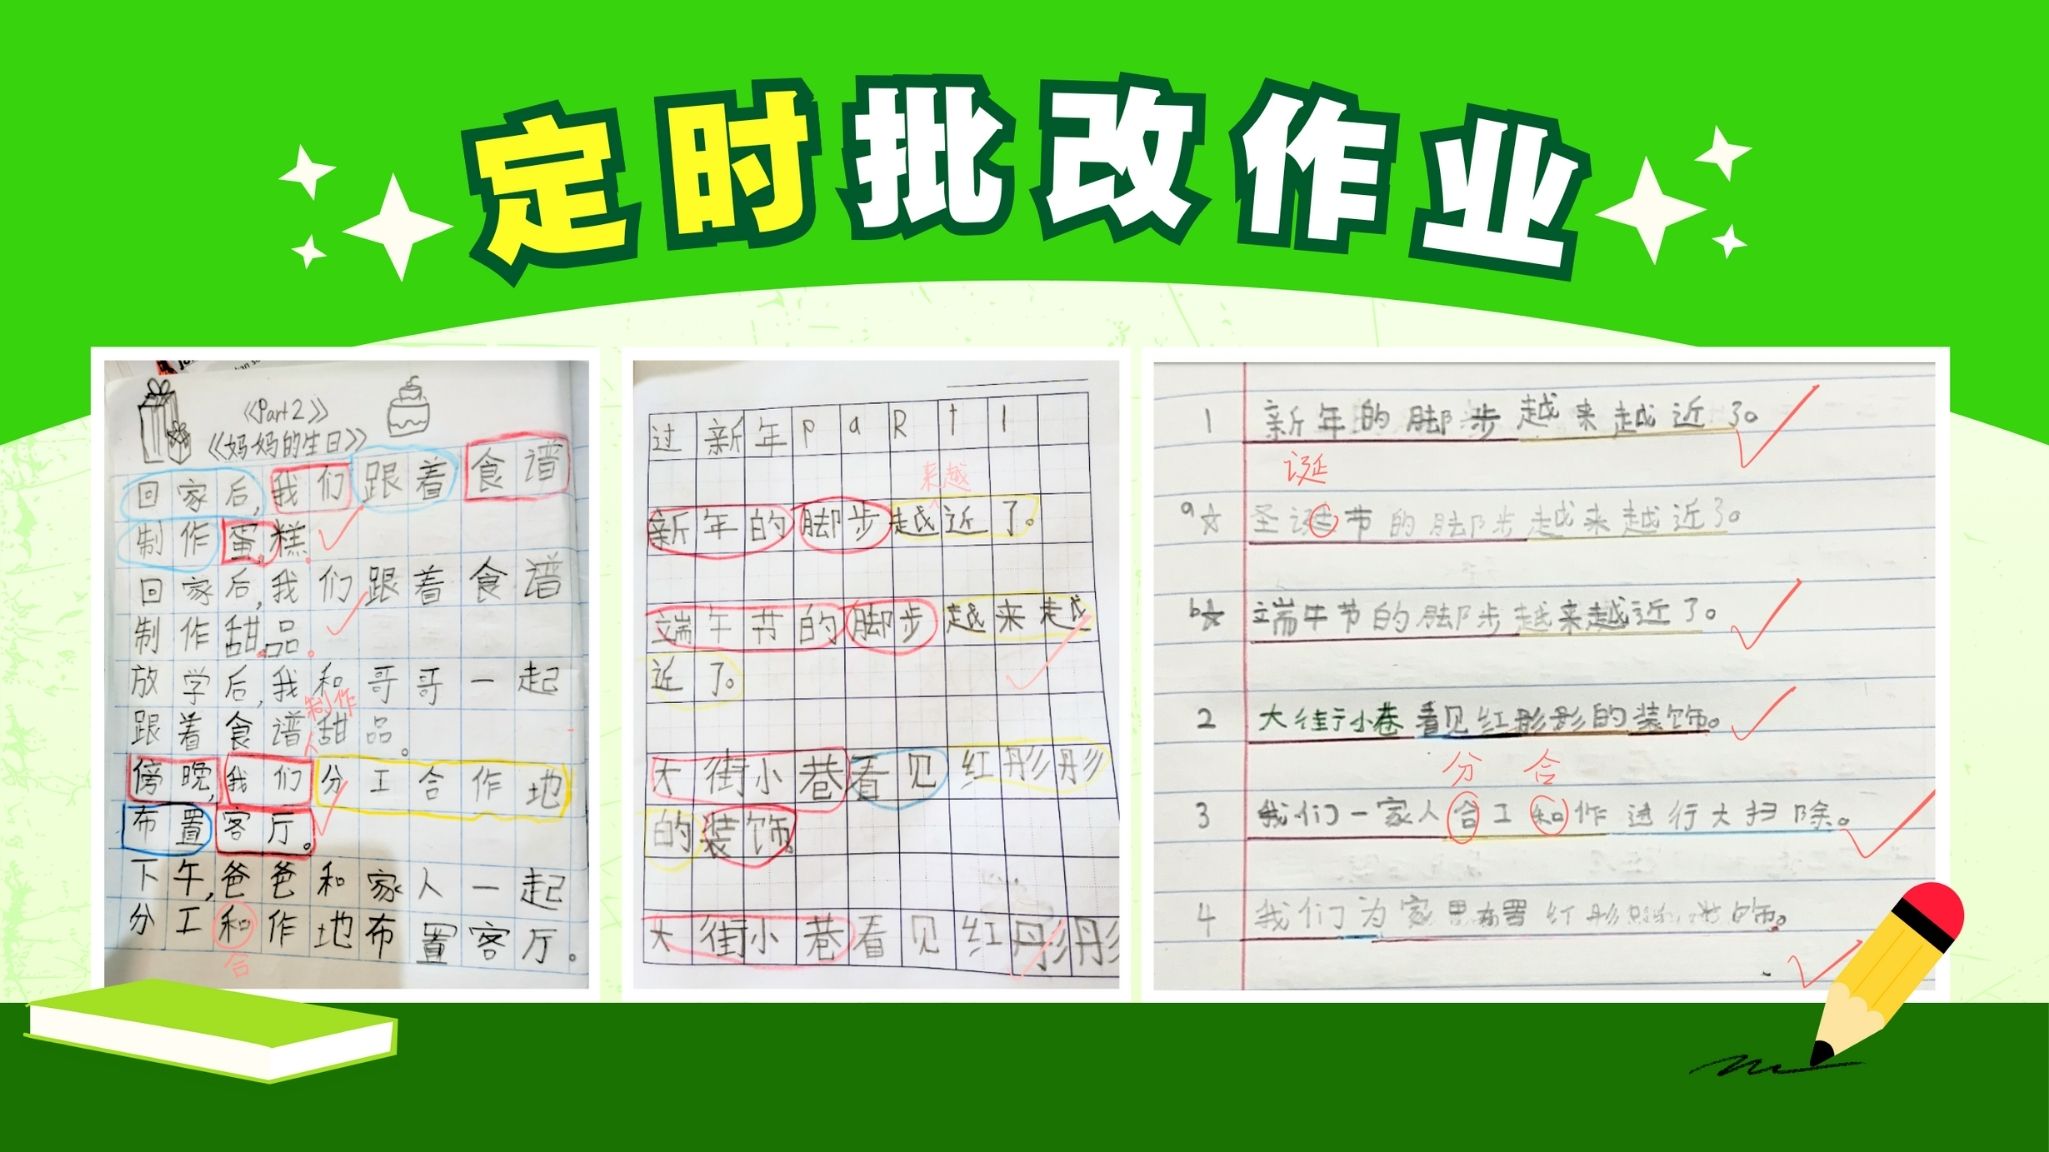 定时批改作业
《Part 2》
《妈妈的生日》
回家后,我们跟着食谱
制作蛋糕。
回家后,我们跟着食谱
制作甜品。
放学后,我和哥哥一起
制作
跟着食谱甜品。
傍晚,我们分工合作地
布置客厅。
下午,爸爸和家人一起
分工和作地布置客厅。
合
过新年paRt1
来越
新年的脚步越近了。
端午节的脚步越来越
近了。
大街小巷看见红彤彤
的装饰。
大街小巷看见红彤彤
1 新年的脚步越来越近了。
诞
a☆ 圣诞节的脚步越来越近了。
b☆ 端午节的脚步越来越近了。
2 大街小巷看见红彤彤的装饰。
分 合
3 我们一家人合工和作进行大扫除。
4 我们为家里布置红彤彤